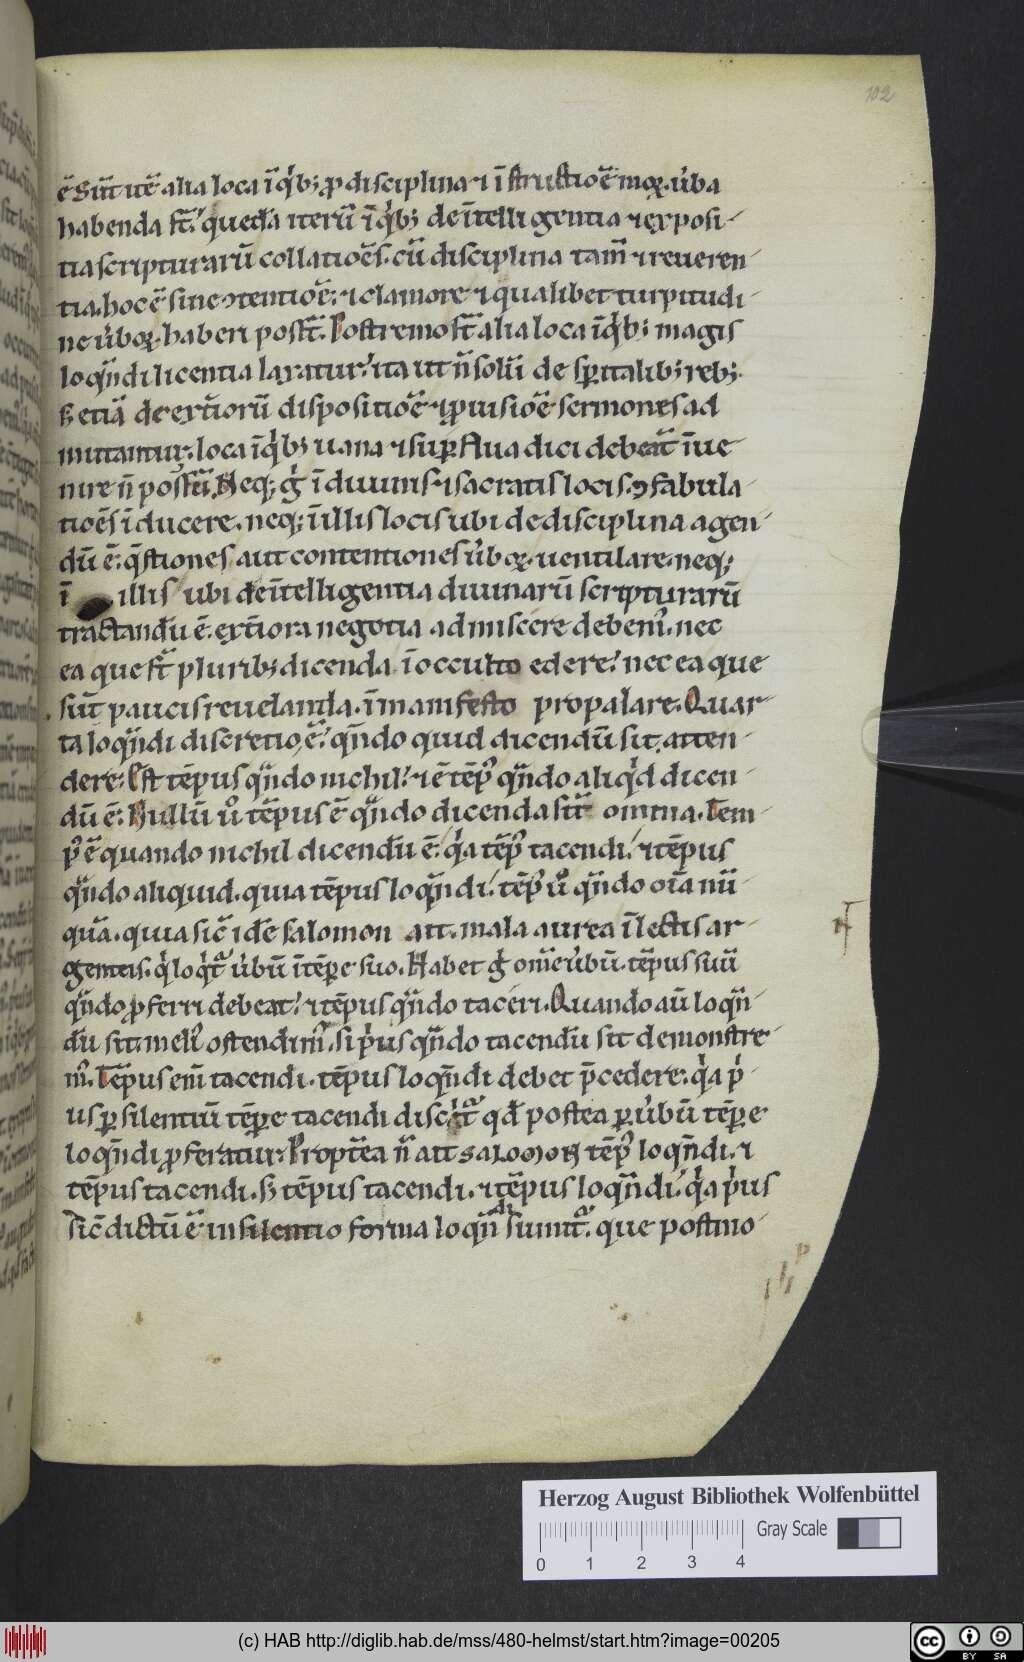 102
ē. Sūt itē alia loca ī q̇b; ꝓ disciplina ⁊ īstructiōe moꝝ. u̇ba
habenda st̄. quedā iterū ī q̇b; de ītelligentia ⁊ exposi-
tia scripturarū collatiōes. cū disciplina tam̄ ⁊ reueren-
tia. hoc ē sine ꝯtentiōe. ⁊ clamore ⁊ qualibet turpitudi-
ne u̇boꝝ. haberi poss̄t. Postremo st̄ alia loca ī q̇b; magis
loqn̄di licentia laxatur. ita ut n̄ solū de sp̄italib; reb;.
s; etiā de ext̄ioꝝ dispositiōe ⁊ ꝓuisiōe sermones ad
mittantur. loca ī q̇b; uana ⁊ suꝑflua dici debeāt īue
nire n̄ possūt. Neq; g̊ ī diuinis ⁊ sacratis locis ꝯfabula
tiōes īducere. neq; ī illis locis ubi de disciplina agen-
dū ē. q̄stiones aut contentiones u̇boꝝ. uentilare. neq;
ī illis ubi de ītelligentia diuinarū scripturarū
tractandū ē. ext̄iora negotia admiscere debem᷒. nec
ea que st̄ plurib; dicenda ī occulto edere. nec ea que
sūt paucis reuelanda. ī manifesto propalare. Quar-
ta loqn̄di discretio, ē. qn̄do quid dicendū sit, atten-
dere. Est tēpus qn̄do nichil. ⁊ ē tēp᷒ qn̄do aliq̇d dicen-
dū ē. Nullū ů tēpus ē qn̄do dicenda sīt omnia. Tem-
p᷒ ē quando nichil dicendū ē. q̇a tēp᷒ tacendi. ⁊ tēpus
qn̄do aliquid. quia tēpus loqn̄di. tēp᷒ ů qn̄do oīa nū-
quā. quia sic̄ idē salomon ait. mala aurea ī lectis ar-
genteis. q̇ loq̇t᷑ u̇bū ītēꝑe suo. Habet g̊ om̄e u̇bū. tēpus suū
qn̄do ꝓferri debeat. ⁊ tēpus qn̄do taceri. Quando aū loqn̄-
dū sit. meli᷒ ostendim᷒. si ṗus qn̄do tacendū sit demonstre-
m᷒. Tēpus eni̅ tacendi. tēpus loqn̄di debet p̄cedere. q̇a ṗ-
us ꝑ silentiū tēꝑe tacendi discit᷑ qd̄ postea ꝑ u̇bū tēꝑe
loqn̄di ꝓferatur. Propt̄ea n̄ ait SALOMON tēp᷒ loqn̄di. ⁊
tēpus tacendi. s; tēpus tacendi. ⁊ tēpus loqn̄di. q̇a ṗus
sic̄ dictū ē in silentio forma loqn̄di sumit᷑. que postmo-
Herzog August Bibliothek Wolfenbüttel
Gray Scale
0 1 2 3 4
(c) HAB http://diglib.hab.de/mss/480-helmst/start.htm?image=00205
cc BY SA